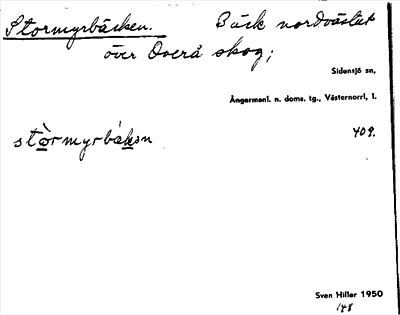 Stormyrbäcken. Bäck nordväster
över Överå skog;
Sidensjö sn,
Ångermanl. n. doms. tg., Västernorrl. l.
409.
stòrmyrbäkən
Sven Hiller 1950
148